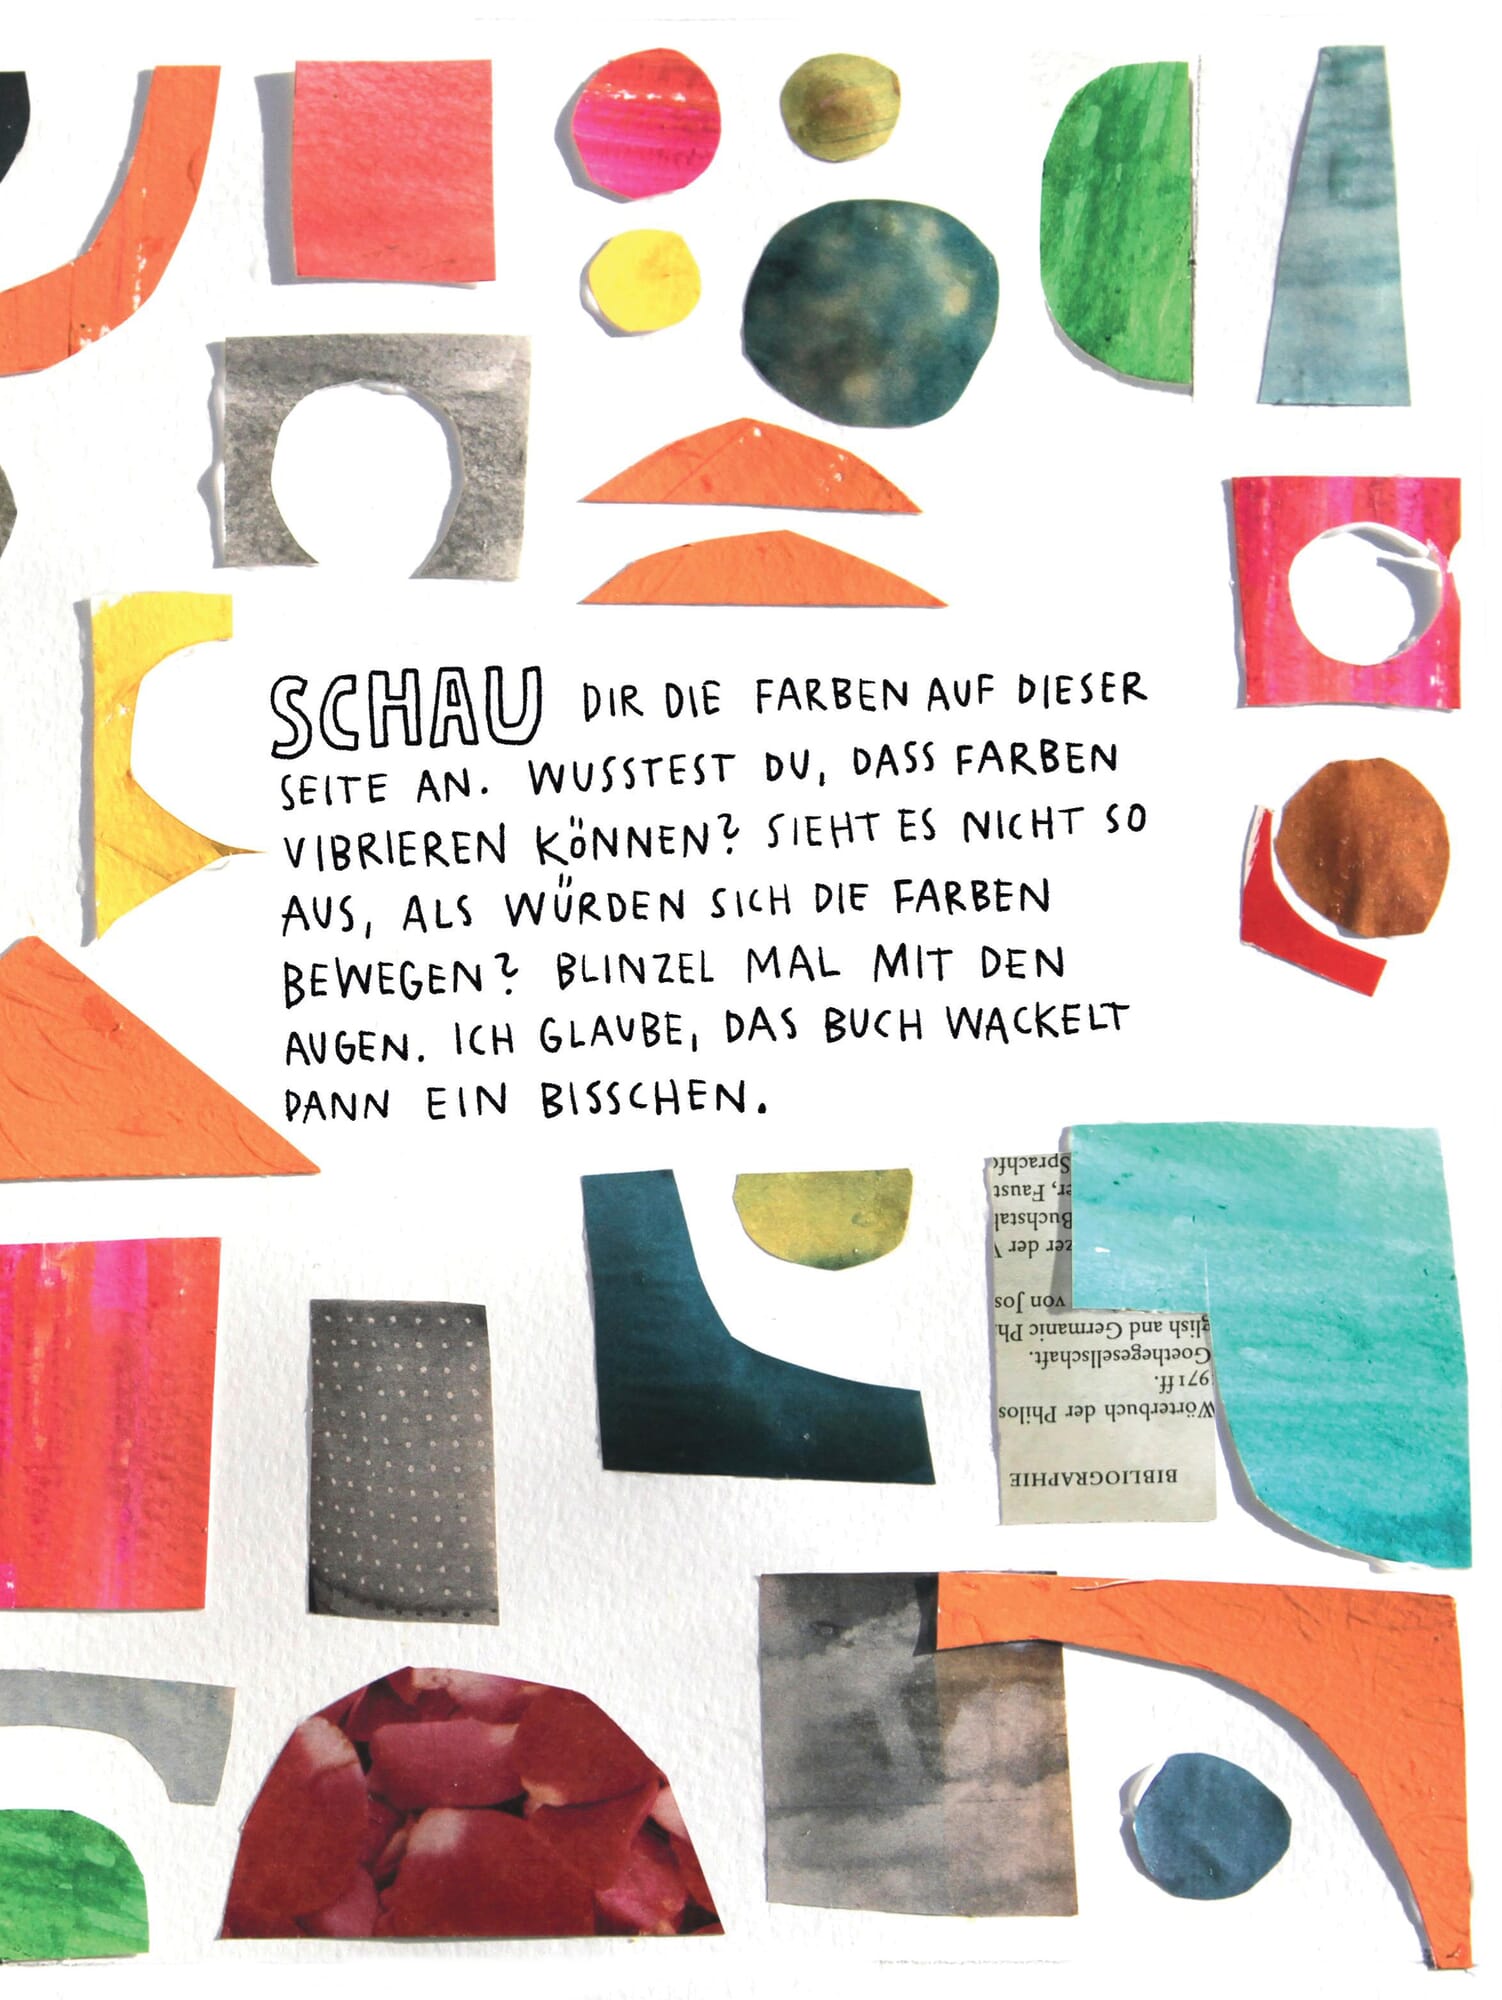 SCHAU DIR DIE FARBEN AUF DIESER
SEITE AN. WUSSTEST DU, DASS FARBEN
VIBRIEREN KÖNNEN? SIEHT ES NICHT SO
AUS, ALS WÜRDEN SICH DIE FARBEN
BEWEGEN? BLINZEL MAL MIT DEN
AUGEN. ICH GLAUBE, DAS BUCH WACKELT
DANN EIN BISSCHEN.
BIBLIOGRAPHIE
Wörterbuch der Philos
971 ff.
Goethegesellschaft.
glish and Germanic Ph
von Jos
zer der
Buchstal
er, Faust
Sprachf